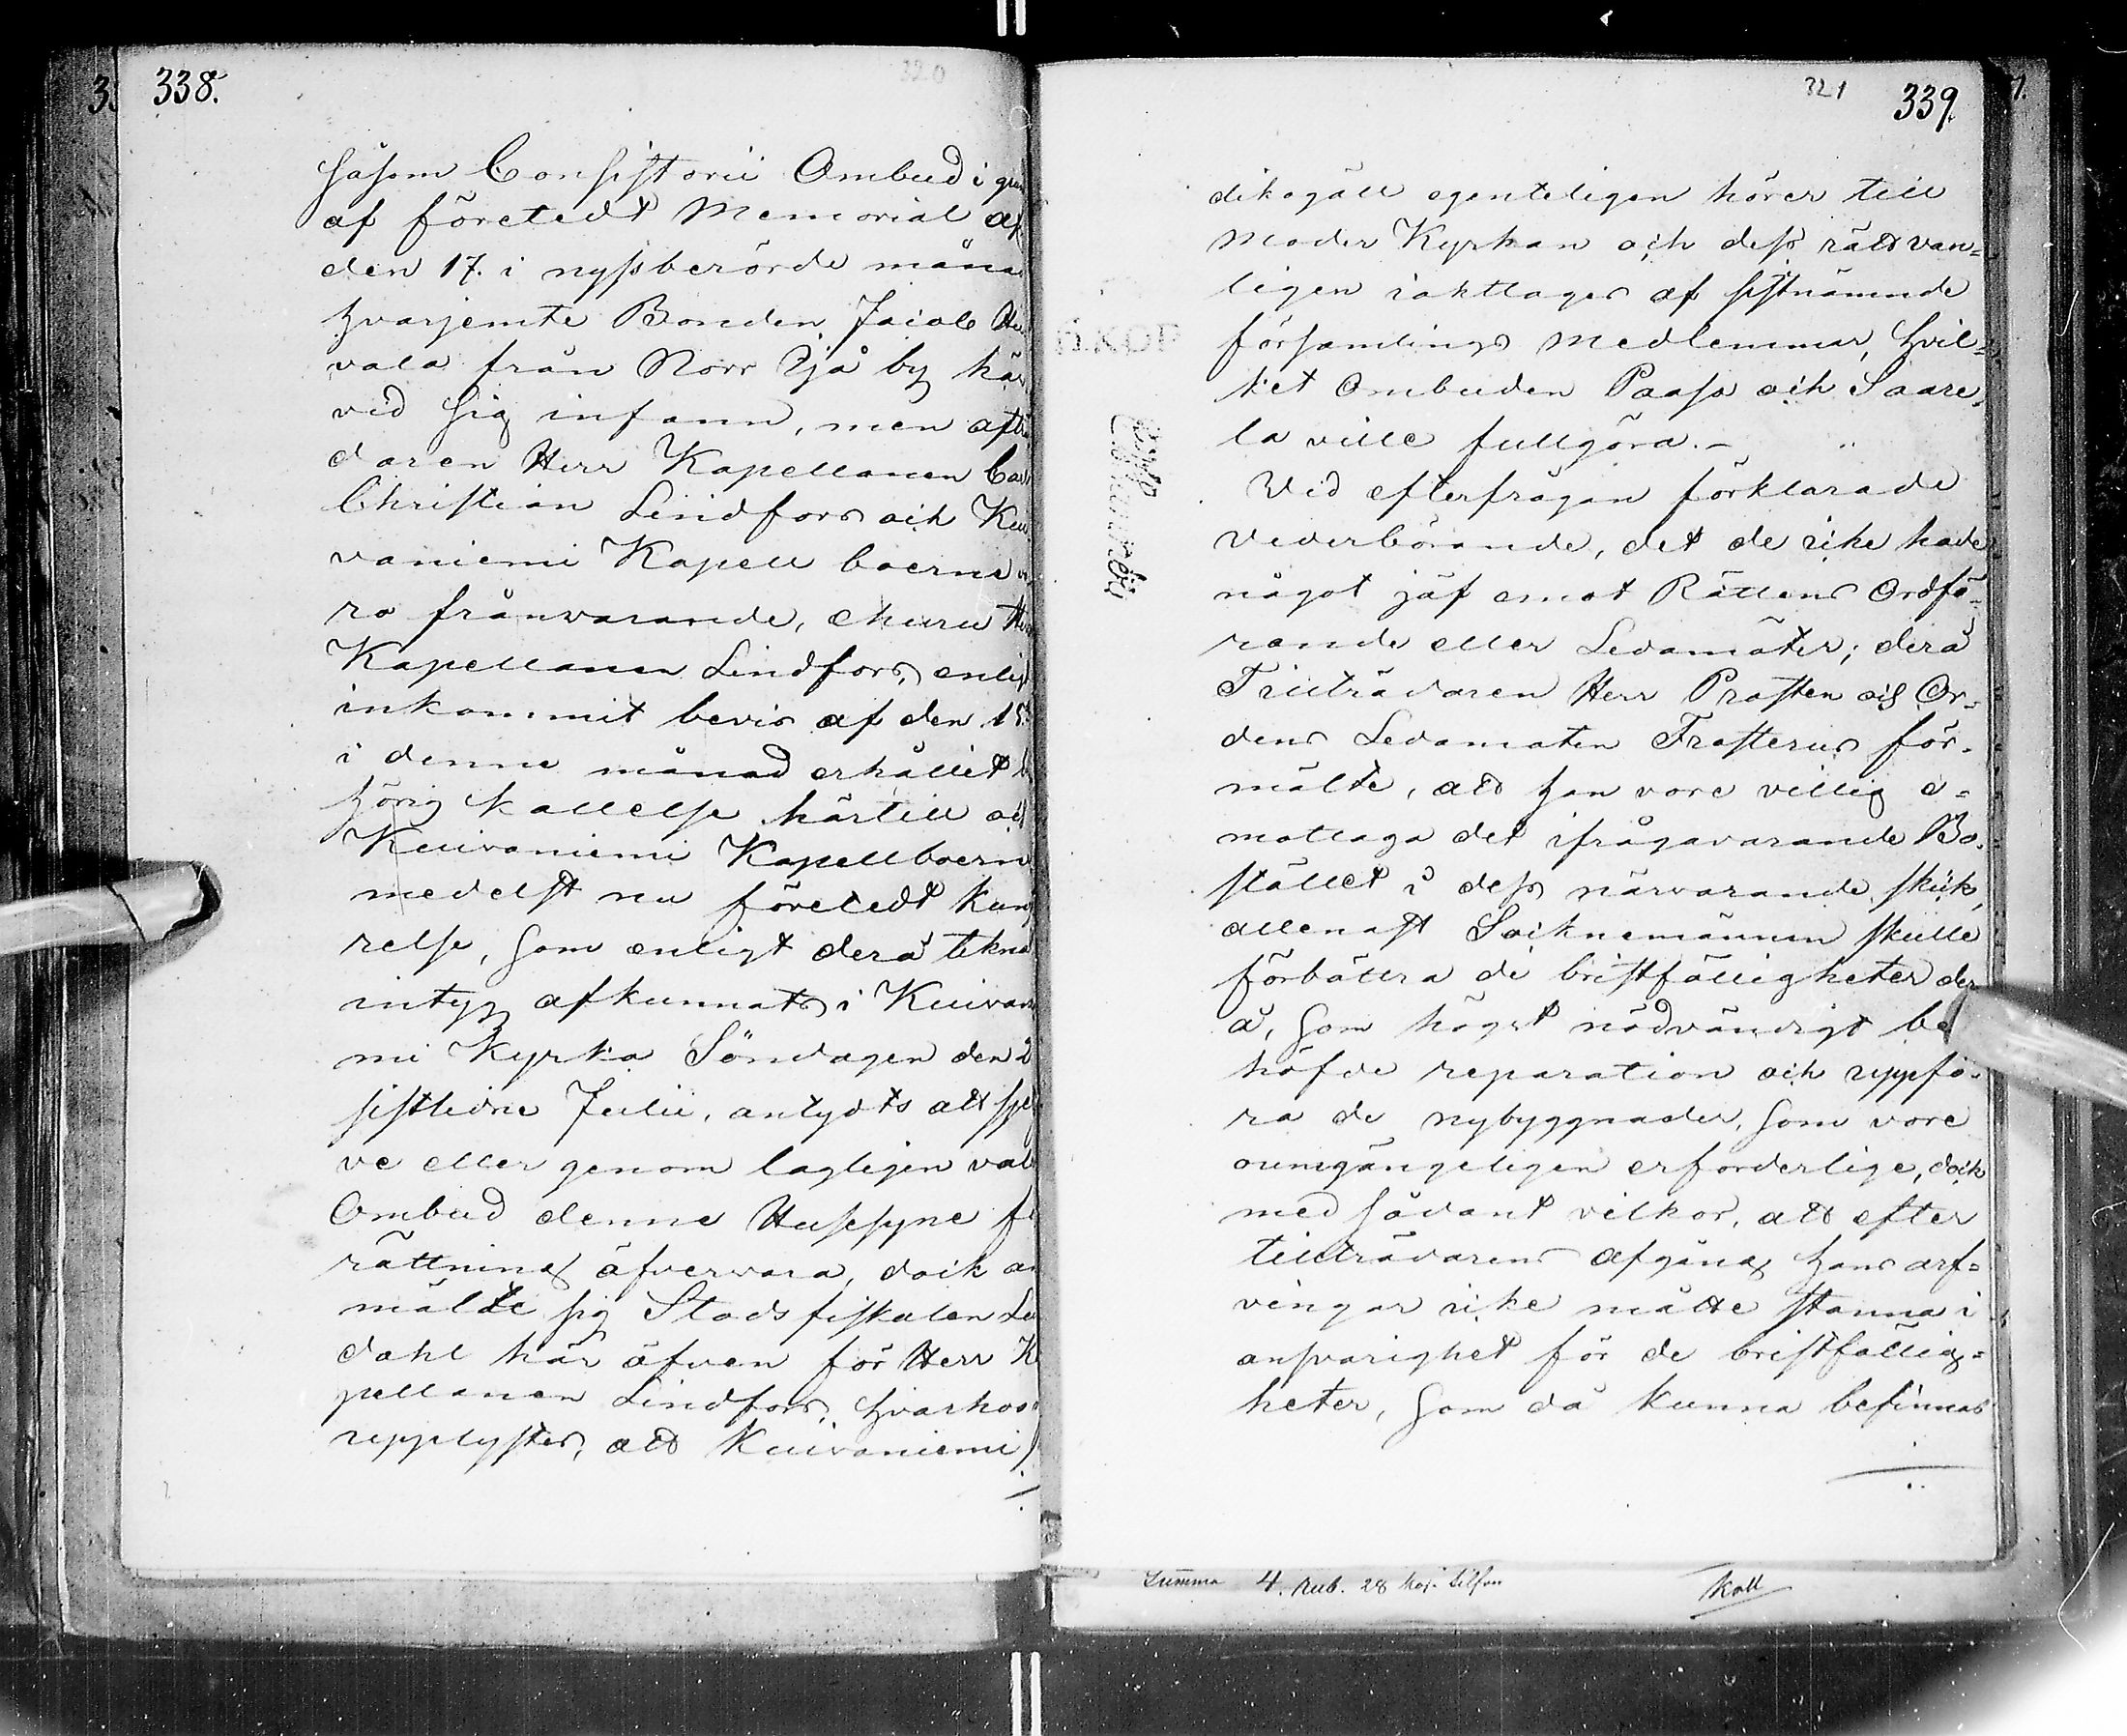 338.
320
såsom Consistorii Ombud i
af företedt Memorial af
den 17. i nyssberörde måna
hvarjemte Bonden Jacob
vala från Norr Ijå by här
vid sig infann, men afträ
daren Herr Kapellanen Carl
Christian Lindfors och Kui
vaniemi Kapell boerne
ro frånvarande, ehuru Herr
Kapellanen Lindfors, enligt
inkommit bevis af den 15
i denne månad erhållit be
hörig kallelse härtill och
Kuivaniemi Kapellboerne
medelst nu företedt kun
relse, som enligt derå tekna
intyg afkunnats i Kuivanie
mi Kyrka Söndagen den 2
sistledne Julii, antydts att sjel
ve eller genom lagligen valde
Ombud denne Hussyne fö
rättning öfvervara, dock an
mälte sig Stadsfiskalen
dahl här äfven för Herr Ka
pellanen Lindfors, hvarhos
upplystes, att Kuivaniemi
321
339.
dikogäll egenteligen hörer till
Moder Kyrkan och dess rätt van=
ligen iakttages af sistnämnde
församlings medlemmar, hvil=
ket Ombuden Paaso och Saare=
la ville fullgöra.-
Vid efterfrågan förklarade
vederbörande, det de icke hade
något jäf emot Rättens Ordfö=
rande eller Ledamöter; derå
Tillträdaren Herr Prosten och Or=
dens Ledamoten Frosterus för=
mälte, att han vore villig e=
mottaga det ifrågavarande Bo=
stället i dess närvarande skick,
allenast Socknemännen skulle
förbättra de bristfälligheter der
å, som högst nödvändigt be
höfde reparation och uppfö=
ra de nybyggnader, som vore
oumgängeligen erforderlige, dock
med sådant vilkor, att efter
tillträdarens afgång hans arf=
vingar icke måtte stanna i
ansvarighet för de bristfällig=
heter, som då kunna befinnas
Summa 4. Rub. 28 kop. Silfver
Koll